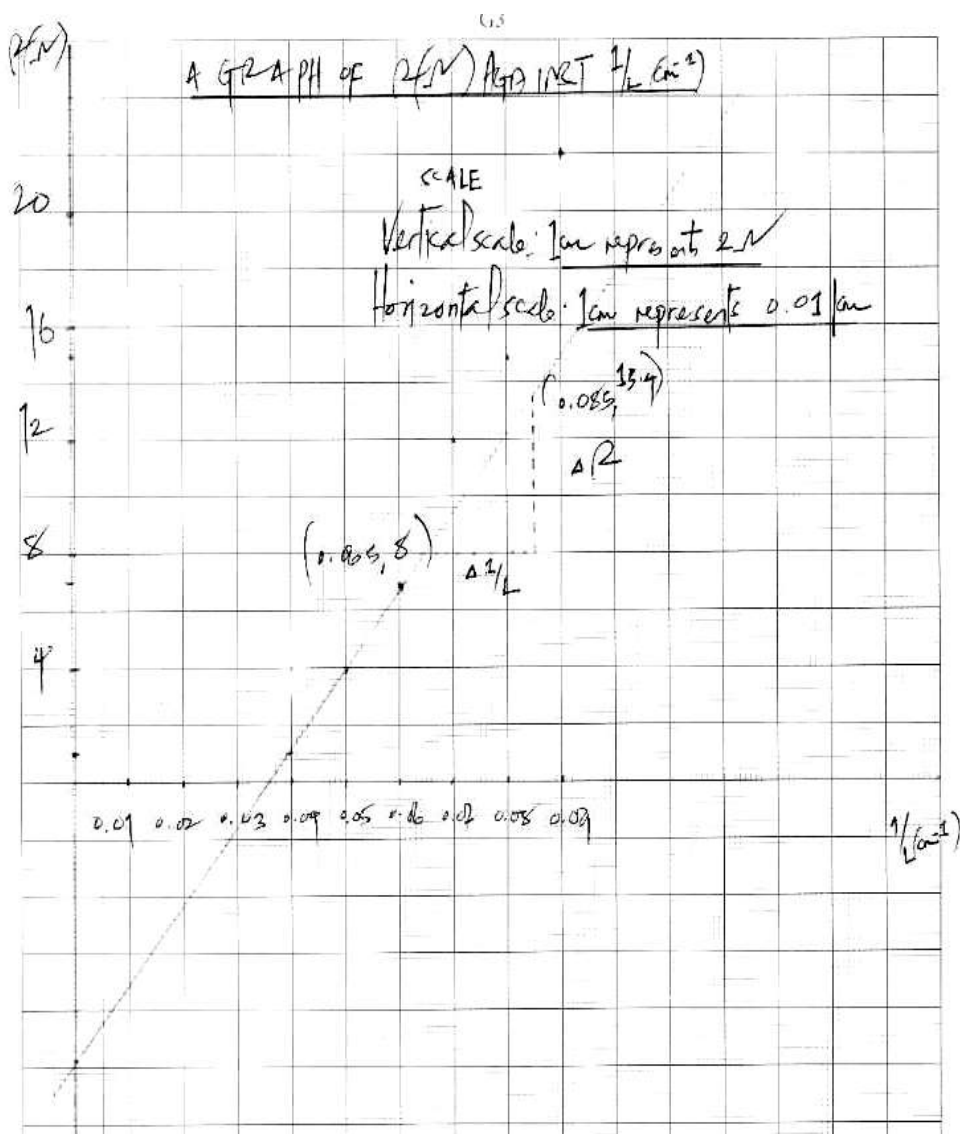 G3
R(N)
A GRAPH OF R(N) AGAINST 1/L (cm⁻¹)
SCALE
20
Vertical scale: 1cm represents 2N
Horizontal scale: 1cm represents 0.01/cm
16
(0.085, 13.4)
12
ΔR
8
(0.065, 8)
Δ1/L
4
0.01 0.02 0.03 0.04 0.05 0.06 0.07 0.08 0.09
1/L(cm⁻¹)